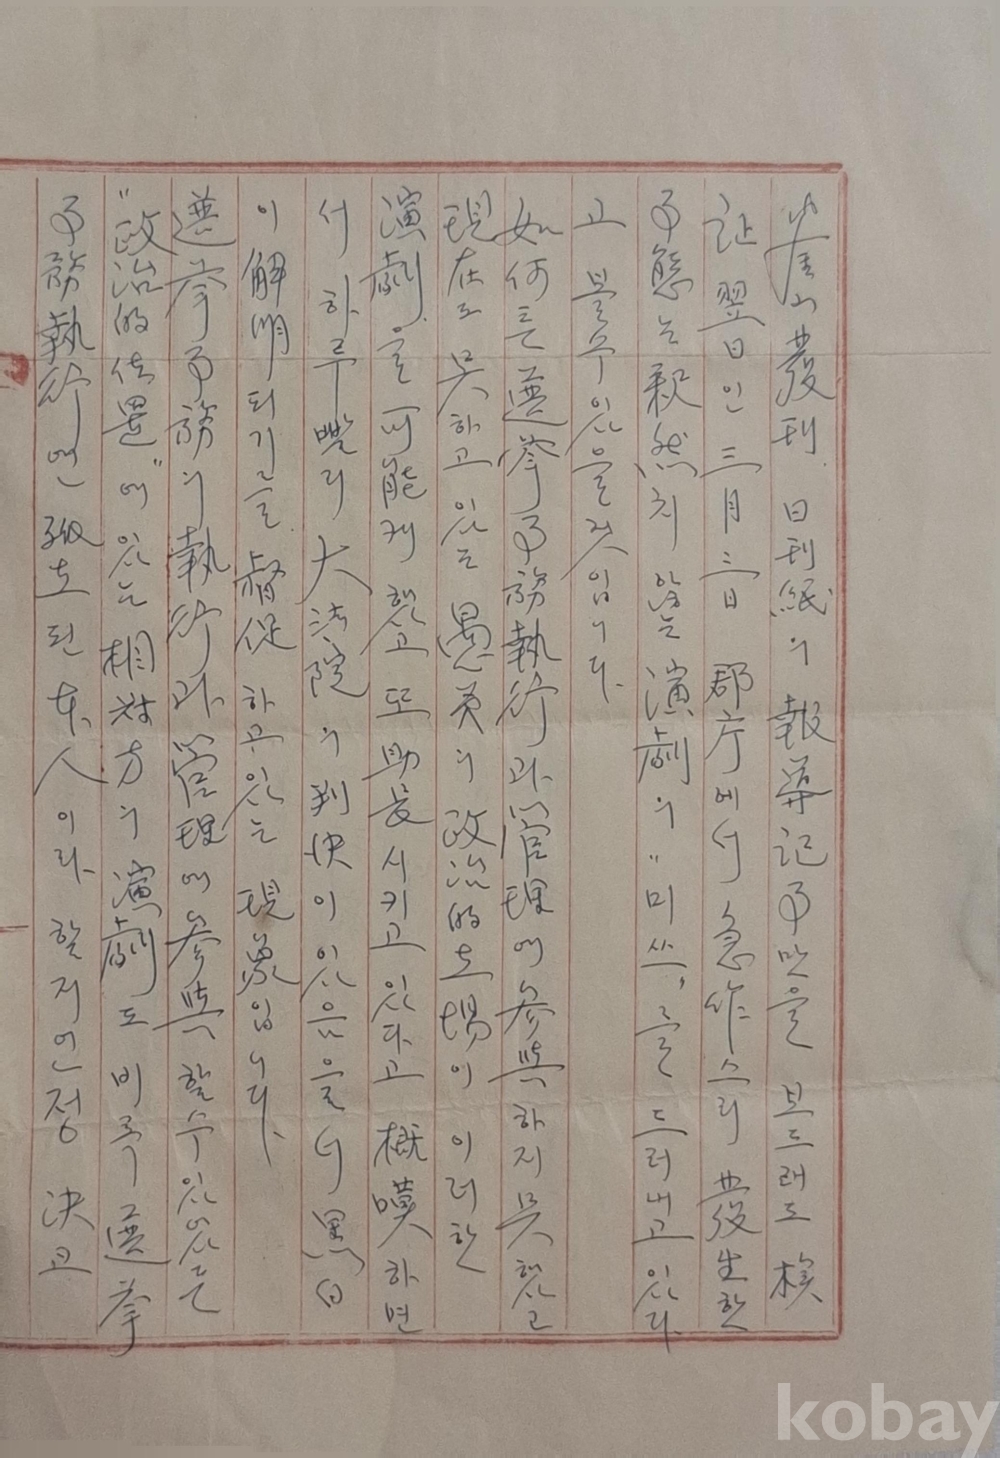 釜山發刊 日刊紙의 報導記事만을 보드래도 檢
証 翌日인 三月三日 郡庁에서 急作스리 發生한
事態는 釈然치 않는 演劇의 "미쓰"를 드러내고 있다
고 볼수있을것입니다.
如何튼 選挙事務執行과 管理에 参與하지 못했고
現在도 못하고 있는 愚弟의 政治的立場이 이러한
演劇을 可能케 했고 또 助長시키고 있다고 概嘆하면
서 하루빨리 大法院의 判決이 있음을서 黒白
이 解明되기를 督促하고있는 現象입니다.
選挙事務의 執行과 管理에 参與할수있었든
"政治的位置"에 있는 相対方의 演劇도 비록 選挙
事務執行에 된 本人이라 할지언정 決코
kobay